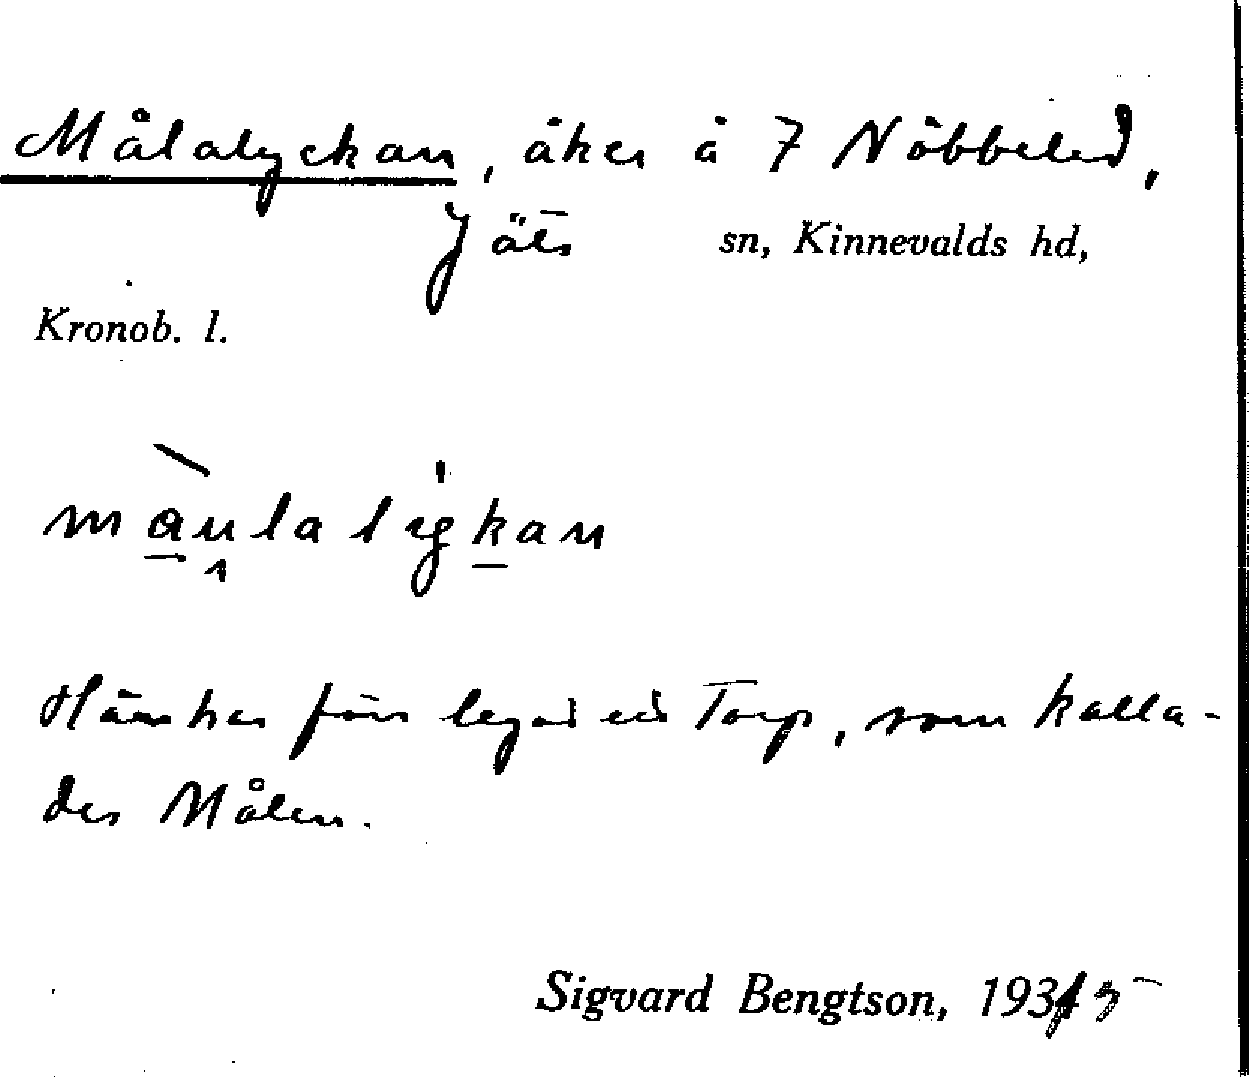 Målalyckan, åker å 7 Nöbbeled,
Jäts sn, Kinnevalds hd,
Kronob. l.
maulalykan
Här har förr legat ett Torp, som kalla-
des Målen.
Sigvard Bengtson, 1935